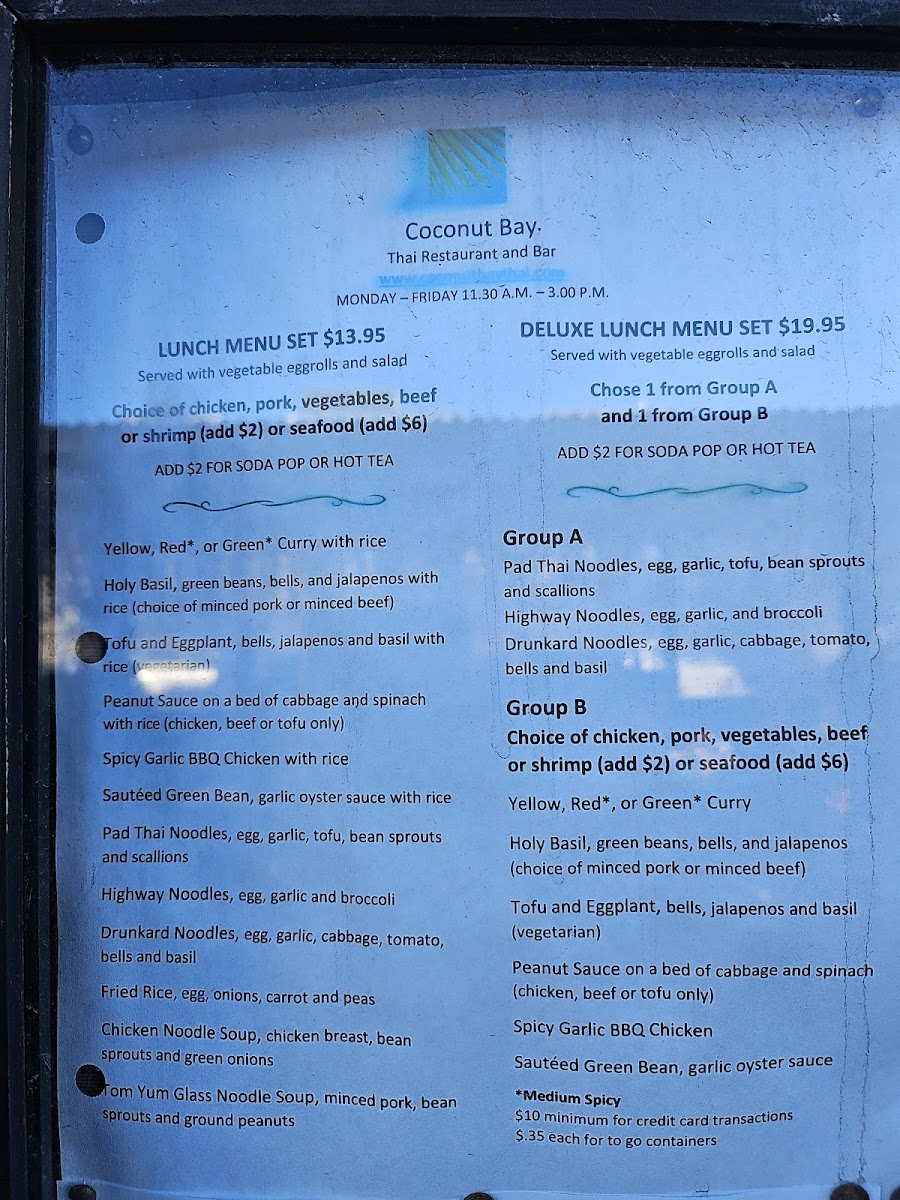 Coconut Bay.
Thai Restaurant and Bar
www.coconutbaythai.com
MONDAY – FRIDAY 11.30 A.M. – 3.00 P.M.
LUNCH MENU SET $13.95
Served with vegetable eggrolls and salad
Choice of chicken, pork, vegetables, beef
or shrimp (add $2) or seafood (add $6)
ADD $2 FOR SODA POP OR HOT TEA
Yellow, Red*, or Green* Curry with rice
Holy Basil, green beans, bells, and jalapenos with
rice (choice of minced pork or minced beef)
Tofu and Eggplant, bells, jalapenos and basil with
rice (vegetarian)
Peanut Sauce on a bed of cabbage and spinach
with rice (chicken, beef or tofu only)
Spicy Garlic BBQ Chicken with rice
Sautéed Green Bean, garlic oyster sauce with rice
Pad Thai Noodles, egg, garlic, tofu, bean sprouts
and scallions
Highway Noodles, egg, garlic and broccoli
Drunkard Noodles, egg, garlic, cabbage, tomato,
bells and basil
Fried Rice, egg, onions, carrot and peas
Chicken Noodle Soup, chicken breast, bean
sprouts and green onions
Tom Yum Glass Noodle Soup, minced pork, bean
sprouts and ground peanuts
DELUXE LUNCH MENU SET $19.95
Served with vegetable eggrolls and salad
Chose 1 from Group A
and 1 from Group B
ADD $2 FOR SODA POP OR HOT TEA
Group A
Pad Thai Noodles, egg, garlic, tofu, bean sprouts
and scallions
Highway Noodles, egg, garlic, and broccoli
Drunkard Noodles, egg, garlic, cabbage, tomato,
bells and basil
Group B
Choice of chicken, pork, vegetables, beef
or shrimp (add $2) or seafood (add $6)
Yellow, Red*, or Green* Curry
Holy Basil, green beans, bells, and jalapenos
(choice of minced pork or minced beef)
Tofu and Eggplant, bells, jalapenos and basil
(vegetarian)
Peanut Sauce on a bed of cabbage and spinach
(chicken, beef or tofu only)
Spicy Garlic BBQ Chicken
Sautéed Green Bean, garlic oyster sauce
*Medium Spicy
$10 minimum for credit card transactions
$.35 each for to go containers